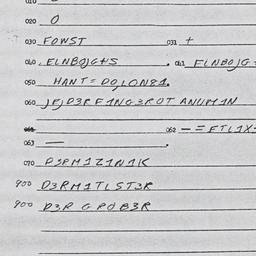 010
020 O
030 FOWST 031 +
040 ELNBOJGHS . 041 ELNBOJG
050 HANT = DOJLON81.
060 JEJD3RFING3ROT ANUMIN
061 062 - = FTL1X-
063 — .
070 D3RM1Z1N1K
900 D3RM1TLST3R
900 D3R GROB3R